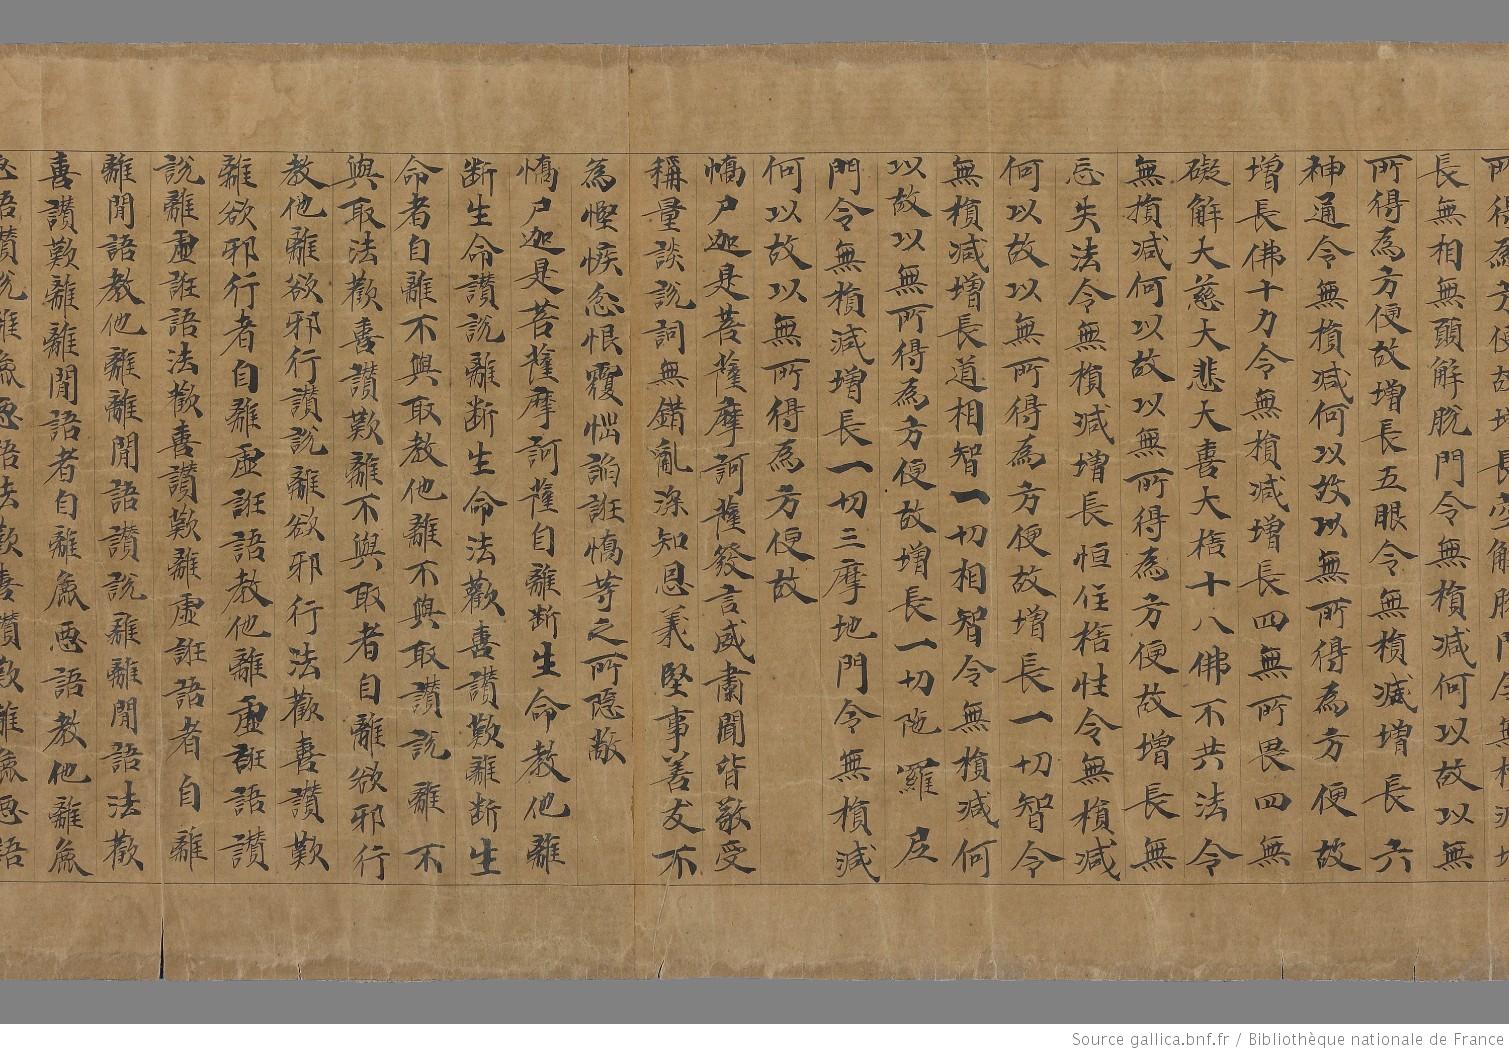 所得為方便故增長空解脫門令無損減增
長無相無願解脫門令無損減何以故以無
所得為方便故增長五眼令無損減增長六
神通令無損減何以故以無所得為方便故
增長佛十力令無損減增長四無所畏四無
礙解大慈大悲大喜大捨十八佛不共法令
無損減何以故以無所得為方便故增長無
忘失法令無損減增長恒住捨性令無損減
何以故以無所得為方便故增長一切智令
無損減增長道相智一切相智令無損減何
以故以無所得為方便故增長一切陁羅尼
門令無損減增長一切三摩地門令無損減
何以故以無所得為方便故
憍尸迦是菩薩摩訶薩發言威肅聞皆敬受
稱量談說詞無錯亂深知恩義堅事善友不
為慳嫉忿恨覆惱諂誑憍等之所隱敝
憍尸迦是菩薩摩訶薩自離斷生命教他離
斷生命讚說離斷生命法歡喜讚歎離斷生
命者自離不與取教他離不與取讚說離不
與取法歡喜讚歎離不與取者自離欲邪行
教他離欲邪行讚說離欲邪行法歡喜讚歎
離欲邪行者自離虛誑語教他離虛誑語讚
說離虛誑語法歡喜讚歎離虛誑語者自離
離間語教他離離間語讚說離離間語法歡
喜讚歎離離間語者自離麁惡語教他離麁
惡語讚說離麁惡語法歡喜讚歎離麁惡語
Source gallica.bnf.fr / Bibliothèque nationale de France